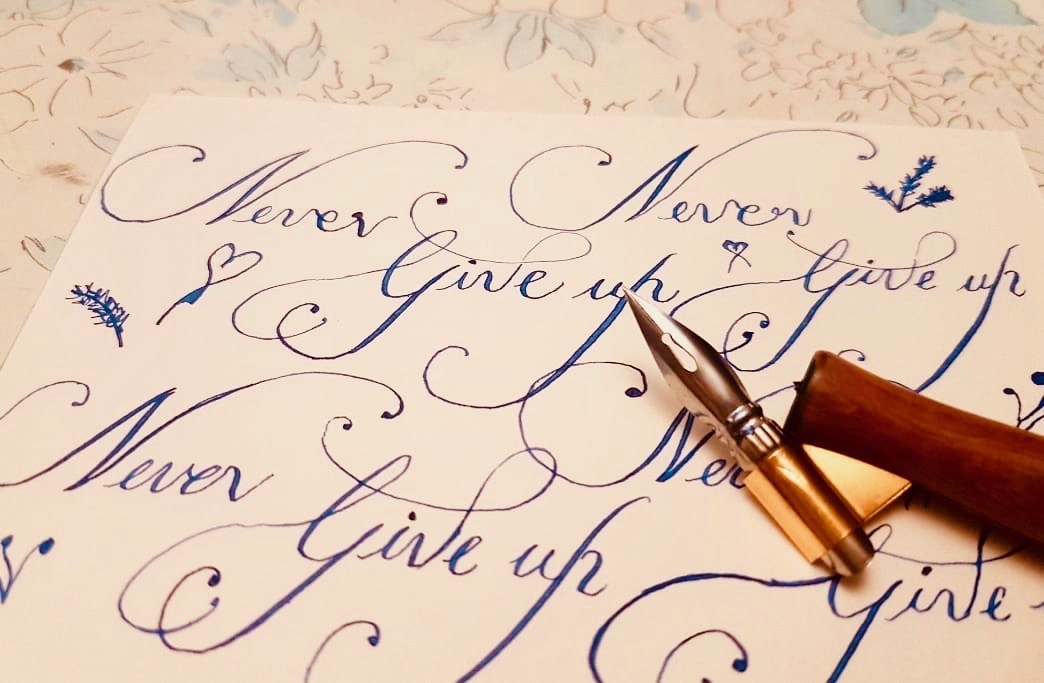 Never Never
Give up Give up
Never
Give up Give